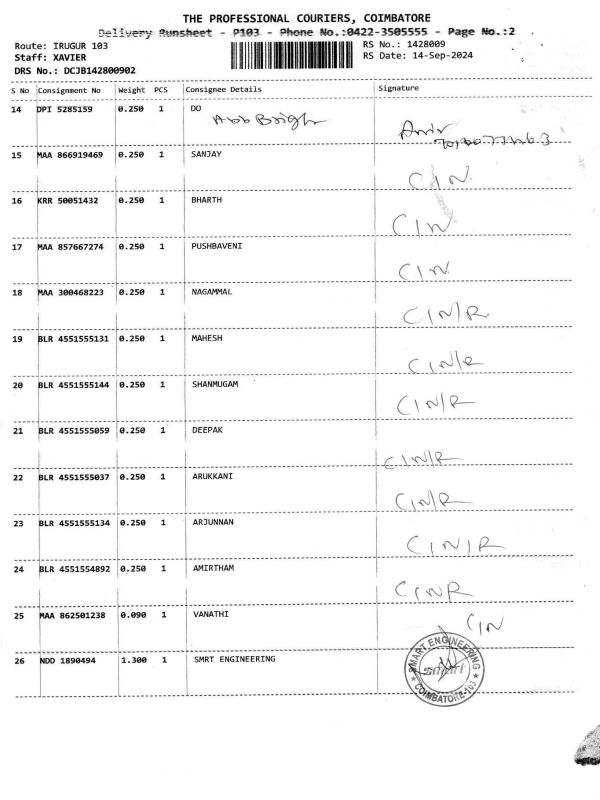 THE PROFESSIONAL COURIERS, COIMBATORE
Delivery Runsheet - P103 - Phone No.:0422-3505555 - Page No.:2
Route: IRUGUR 103 RS No.: 1428009
Staff: XAVIER RS Date: 14-Sep-2024
DRS No.: DCJB142800902
S No Consignment No Weight PCS Consignee Details Signature
14 DPI 5285159 0.250 1 DO
15 MAA 866919469 0.250 1 SANJAY
CIN
16 KRR 50051432 0.250 1 BHARTH
CIN
17 MAA 857667274 0.250 1 PUSHBAVENI
CIN
18 MAA 300468223 0.250 1 NAGAMMAL
CIN/R
19 BLR 4551555131 0.250 1 MAHESH
CIN/R
20 BLR 4551555144 0.250 1 SHANMUGAM
CIN/R
21 BLR 4551555059 0.250 1 DEEPAK
CIN/R
22 BLR 4551555037 0.250 1 ARUKKANI
CIN/R
23 BLR 4551555134 0.250 1 ARJUNNAN
CIN/R
24 BLR 4551554892 0.250 1 AMIRTHAM
CINR
25 MAA 862501238 0.090 1 VANATHI
CIN
26 NDD 1890494 1.300 1 SMRT ENGINEERING
SMART ENGINEERING
smart
COIMBATORE-103